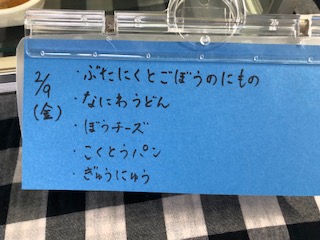 2/9
(金)
・ぶたにくとごぼうのにもの
・なにわうどん
・ぼうチーズ
・こくとうパン
・ぎゅうにゅう